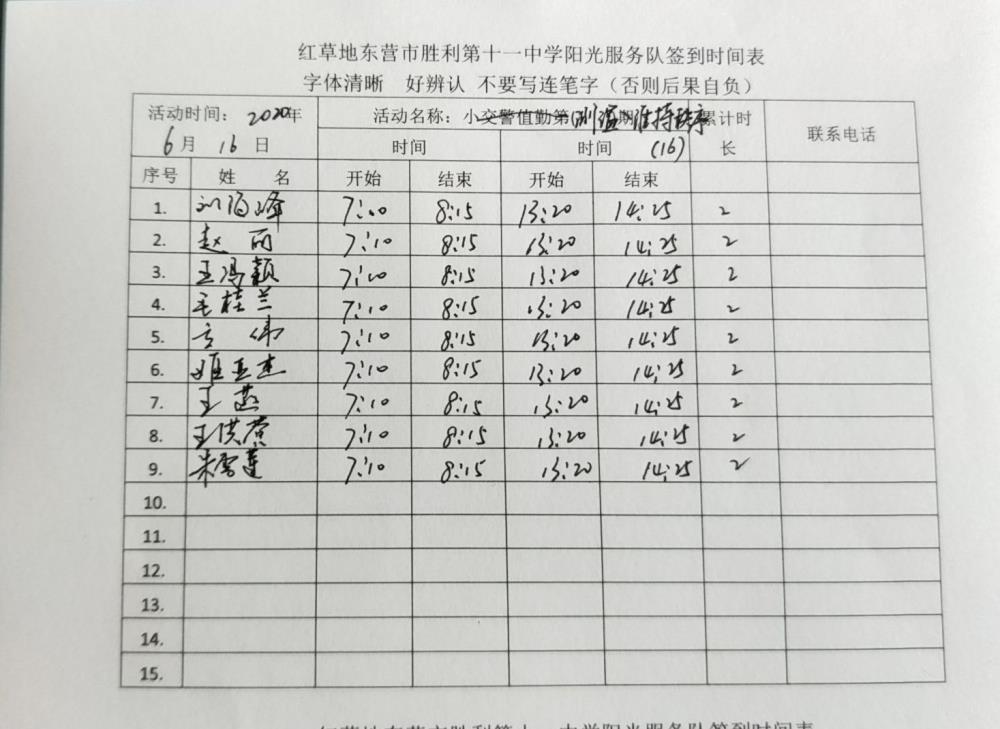 红草地东营市胜利第十一中学阳光服务队签到时间表
字体清晰 好辨认 不要写连笔字（否则后果自负）
活动时间： 2020年 活动名称：小交警值勤第 期 测温 维持秩序 累计时长 联系电话
6月 16日 时间 时间 (16)
序号 姓 名 开始 结束 开始 结束
1. 7:10 8:15 13:20 14:25 2
2. 赵丽 7:10 8:15 13:20 14:25 2
3. 王冯颖 7:10 8:15 13:20 14:25 2
4. 毛桂兰 7:10 8:15 13:20 14:25 2
5. 方伟 7:10 8:15 13:20 14:25 2
6. 姬亚杰 7:10 8:15 13:20 14:25 2
7. 王燕 7:10 8:15 13:20 14:25 2
8. 王洪 7:10 8:15 13:20 14:25 2
9. 朱雪莲 7:10 8:15 13:20 14:25 2
10.
11.
12.
13.
14.
15.
红草地东营市胜利第十一中学阳光服务队签到时间表